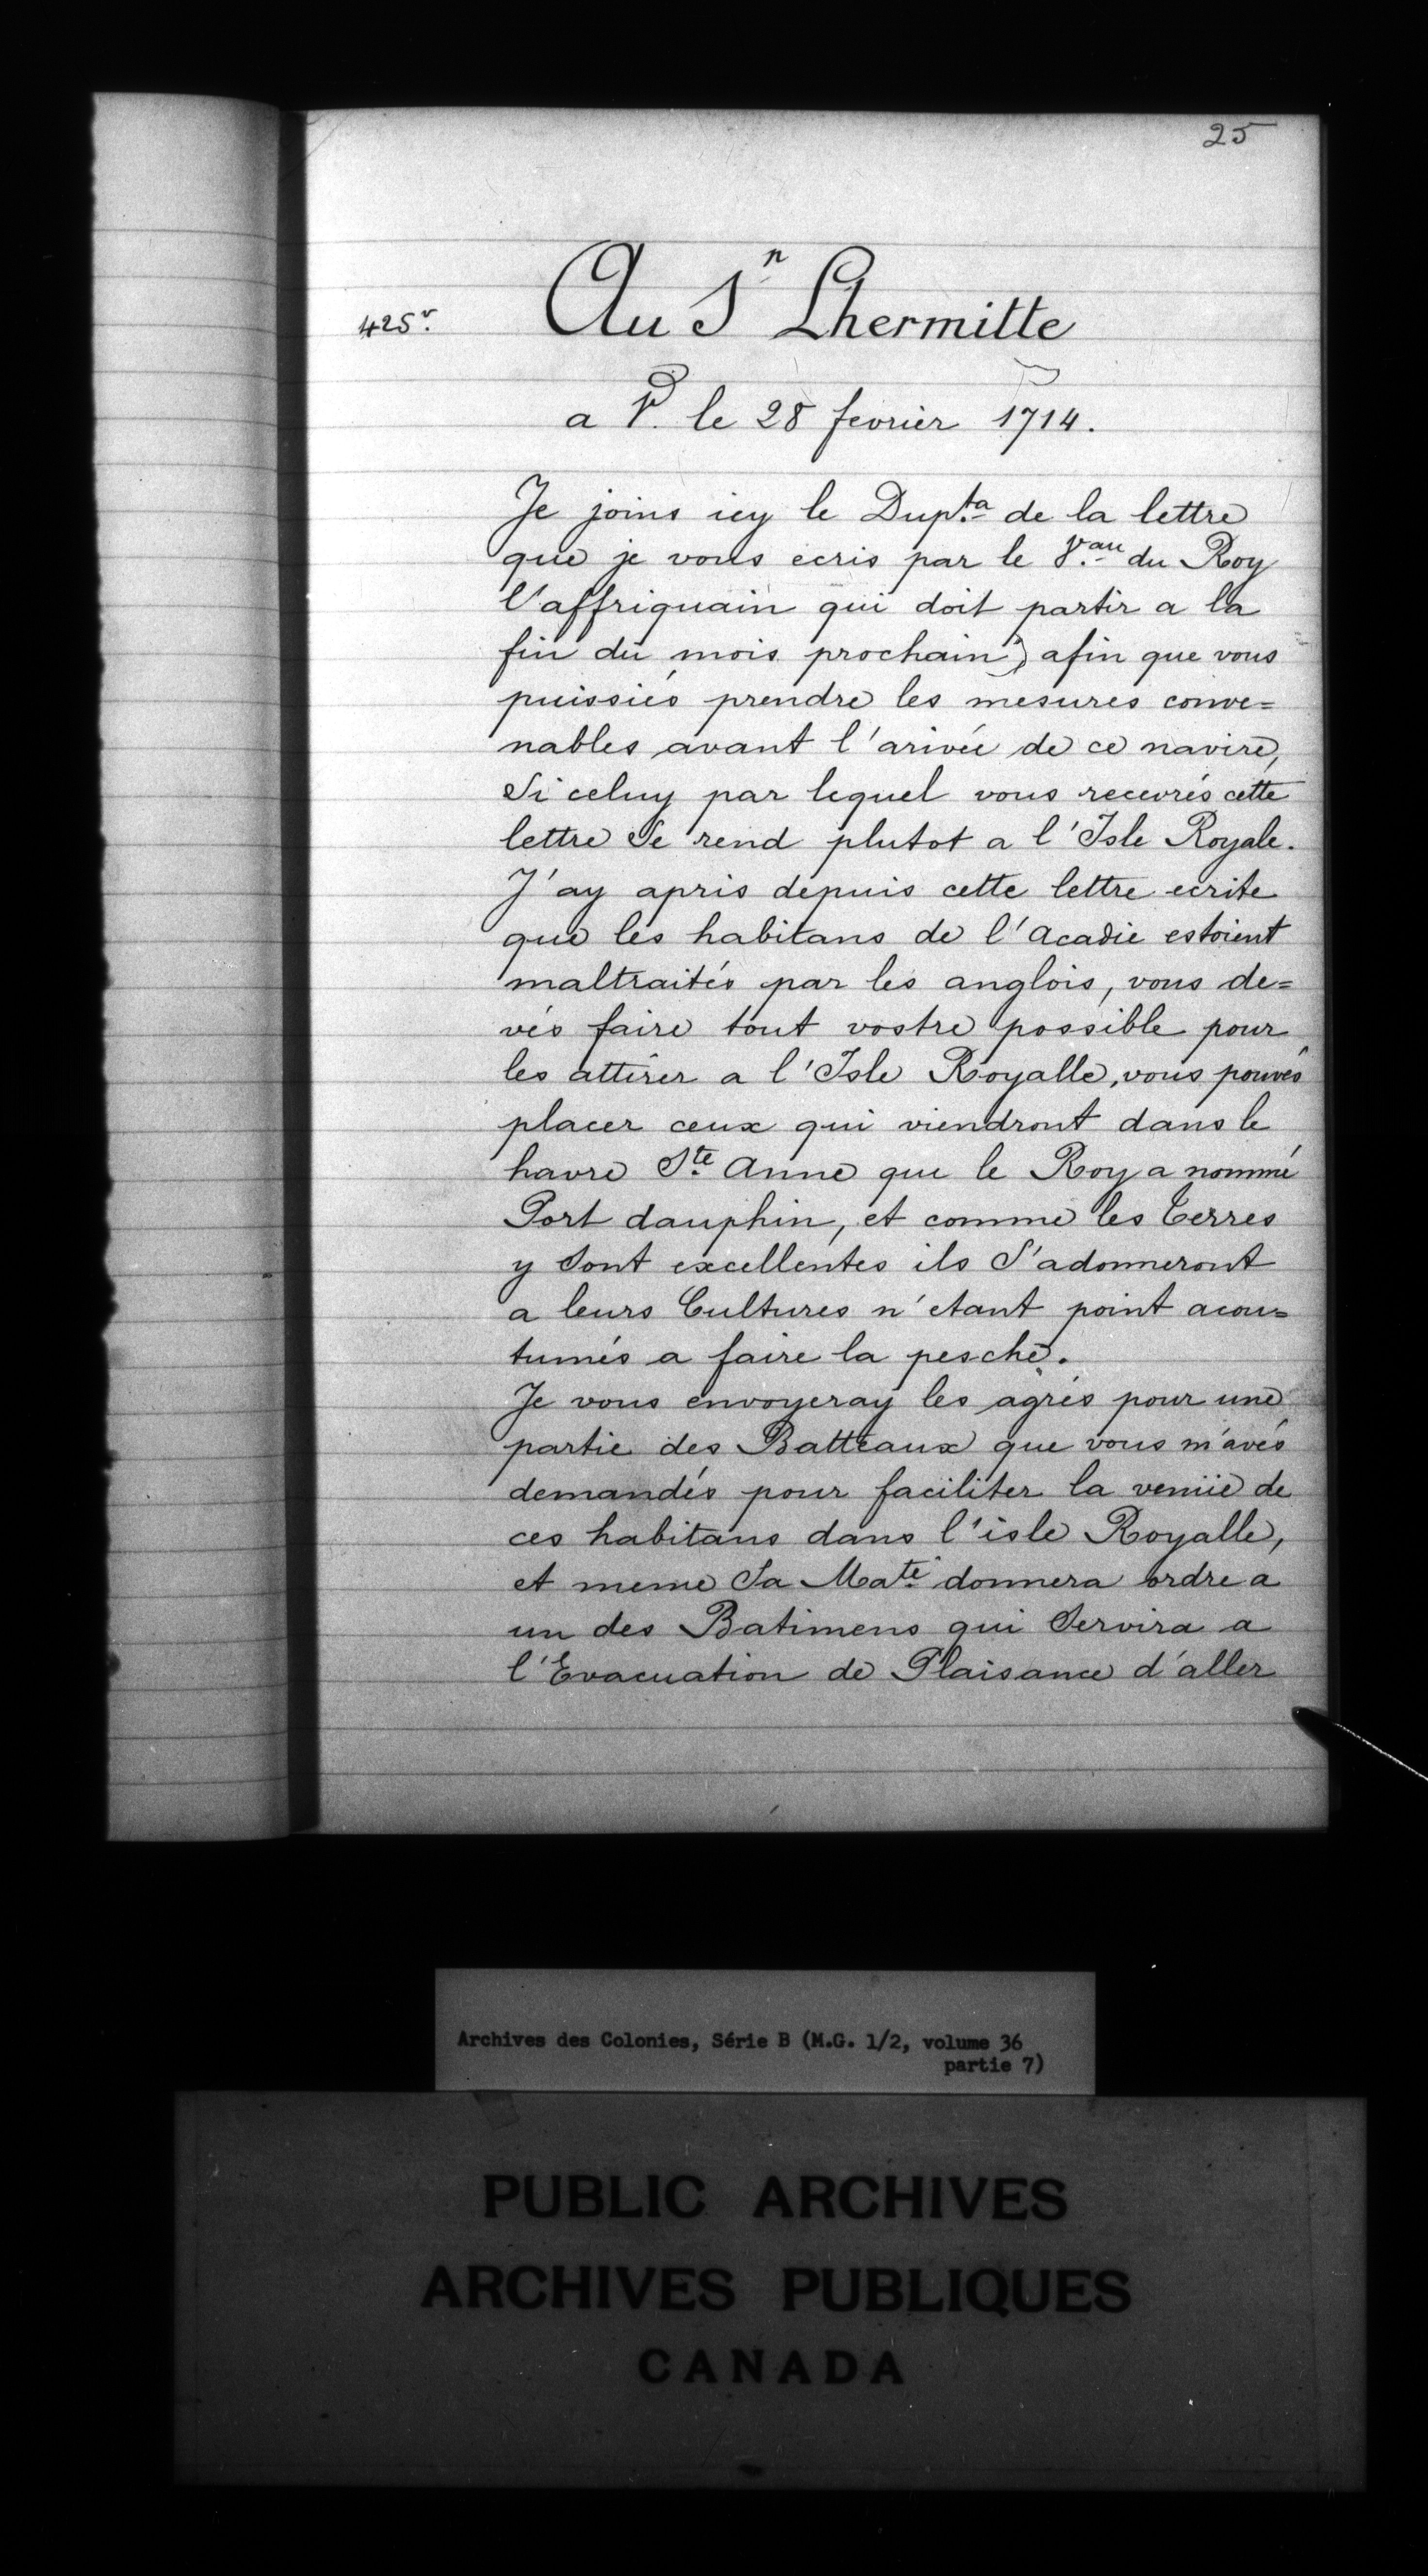 25
425v.
Au Sn Lhermitte
a V. le 28 fevrier 1714.
Je joins icy le Dup.ta de la lettre
que je vous ecris par le V.au du Roy
l'affriquain qui doit partir a la
fin du mois prochain) afin que vous
puissiés prendre les mesures conve=
nables avant l'arivée de ce navire,
Si celuy par lequel vous recevrés cette
lettre Se rend plutot a l'Isle Royale.
J'ay apris depuis cette lettre ecrite
que les habitans de l'Acadie estoient
maltraités par les anglois, vous de=
vés faire tout vostre possible pour
les attirer a l'Isle Royalle, vous pouvés
placer ceux qui viendront dans le
havre S.te Anne que le Roy a nommé
Port dauphin, et comme les Terres
y Sont excellentes ils S'adonneront
a leurs Cultures n'etant point acou=
tumés a faire la pesche.
Je vous envoyeray les agrés pour une
partie des Batteaux que vous m'avés
demandés pour faciliter la venüe de
ces habitans dans l'isle Royalle,
et meme Sa Ma.té donnera ordre a
un des Batimens qui Servira a
l'Evacuation de Plaisance d'aller
Archives des Colonies, Série B (M.G. 1/2, volume 36
partie 7)
PUBLIC ARCHIVES
ARCHIVES PUBLIQUES
CANADA